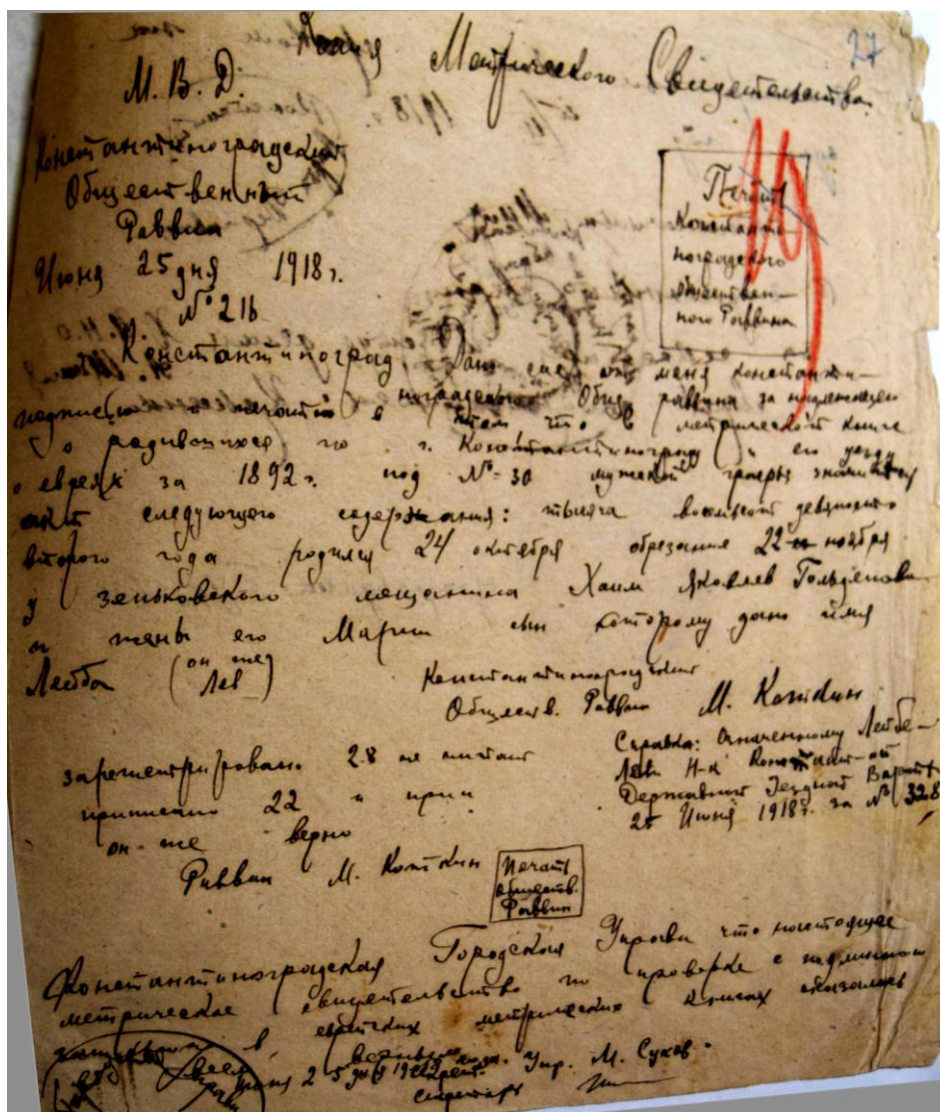 27
Копия Метрического Свидетельства.
М. В. Д.
Константиноградский
Общественный
Раввин
Июня 25 дня 1918 г.
№ 216
Печать
Константи-
ноградского
обществен-
ного Раввина
Константиноград, Дано сие от меня Константи-
ноградского Общ. раввина за надлежащею
подписью и печатью в том что в метрической книге
о родившихся по г. Константинограду и его уезду
о евреях за 1892 г. под № 30 мужской графы значится
акт следующего содержания: тысяча восемьсот девяносто
второго года родился 24 октября обрезания 22-го ноября
у зеньковского мещанина Хаим Яковлев Гольденова
и жены его Марии сын которому дано имя
Лейба (он же Лев)
Константиноградский
Обществ. Раввин М. Коткин
зарегистрировано 28 не читать
приписано 22 и при
он-же верно
Раввин М. Коткин
Печать
обществ.
Раввин
Справка: Означенному Лейбе-
Леви Константин-ой
Державной Уездной Варты
25 Июня 1918 г. за № 328
Константиноградская Городская Управа что настоящее
метрическое свидетельство по проверке с подлинною
в еврейских метрических книгах оказалась
верным. Упр. М. Сухов.
Июня 25 дня 1918 года.
Секретарь